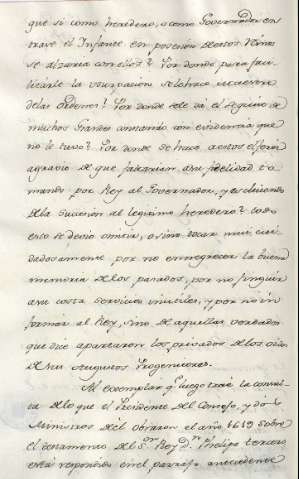 que si como heredero, o como Governador en
trase el Infante en posesion de estos Reinos
se alzaria con ellos? Por donde para faci
litarle la usurpacion se le hace maestre
de las Ordenes? Por donde se le dá el sequito de
muchos Grandes constando con evidencia que
no le tuvo? Por donde se hace a estos el feo
agravio de que faltarian a su fidelidad to
mando por Rey al Governador, y excluiendo
de la sucesion al legitimo heredero? todo
esto se devio omitir, o sino tocar mui cui
dadosamente por no ennegrecer la buena
memoria de los pasados, por no fingir
a su costa servicios inutiles, y por no in
formar al Rey, sino de aquellas verdades
que dice apartaron los privados de los oidos
de sus Augustos Progenitores.
Al exemplar q. luego trae la consul
ta de lo que el Presidente del Consejo, y dos
Ministros del obraron el año 1619 sobre
el testamento del S.or Rey D.n Phelipe tercero,
está respondido en el parrafo antecedente